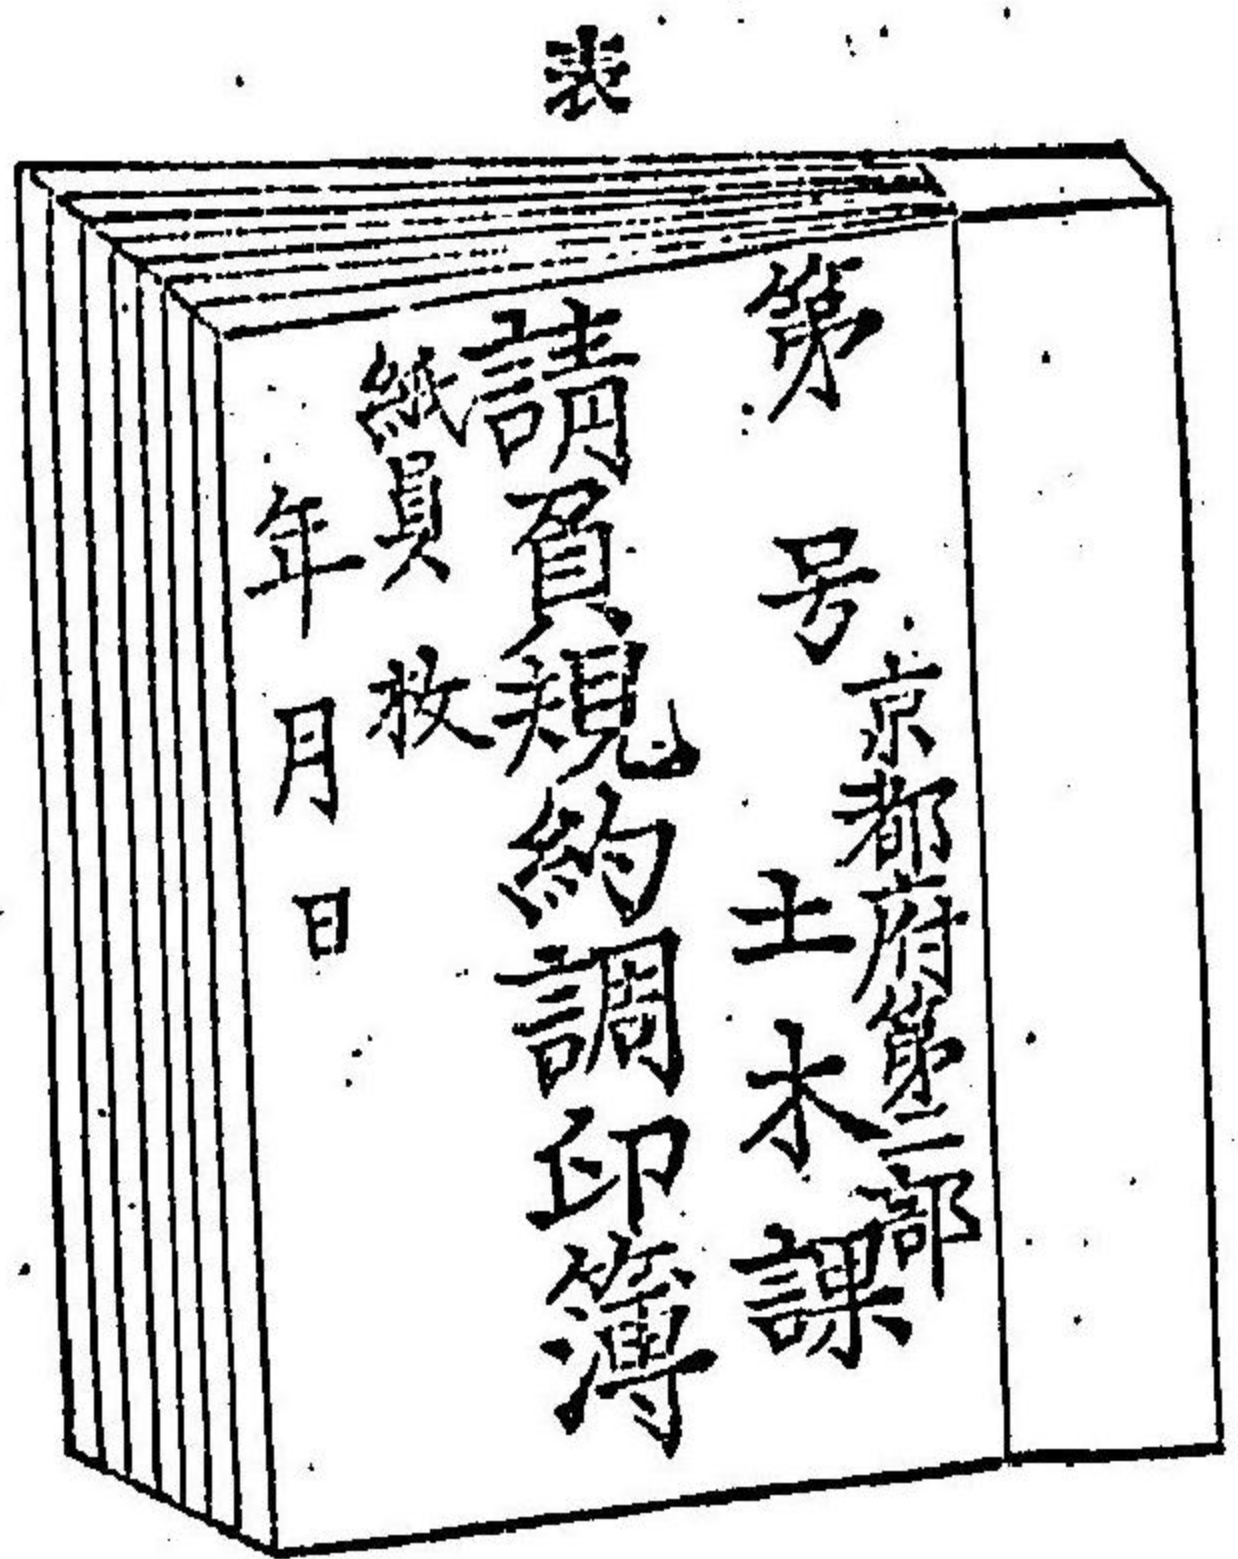 表
第 号
京都府第二部
土木課
請負規約調印簿
紙員 枚
年 月 日